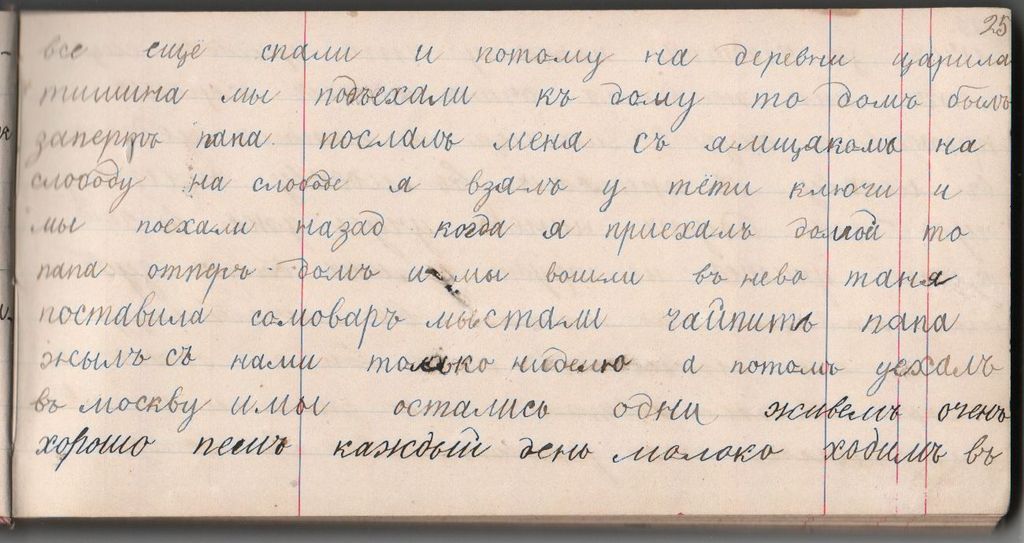 25
все ещё спали и потому на деревни царила
тишина мы подъехали къ дому то домъ былъ
запертъ папа послалъ меня съ ямщакомъ на
слободу на слободе я взялъ у тёти ключи и
мы поехали назад когда я приехалъ домой то
папа отперъ домъ и мы вошли въ нево таня
поставила сомоваръ мы стали чайпить папа
жылъ съ нами только ниделю а потомъ уехалъ
въ москву и мы остались одни живемъ очень
хорошо пемъ каждый день молоко ходимъ въ